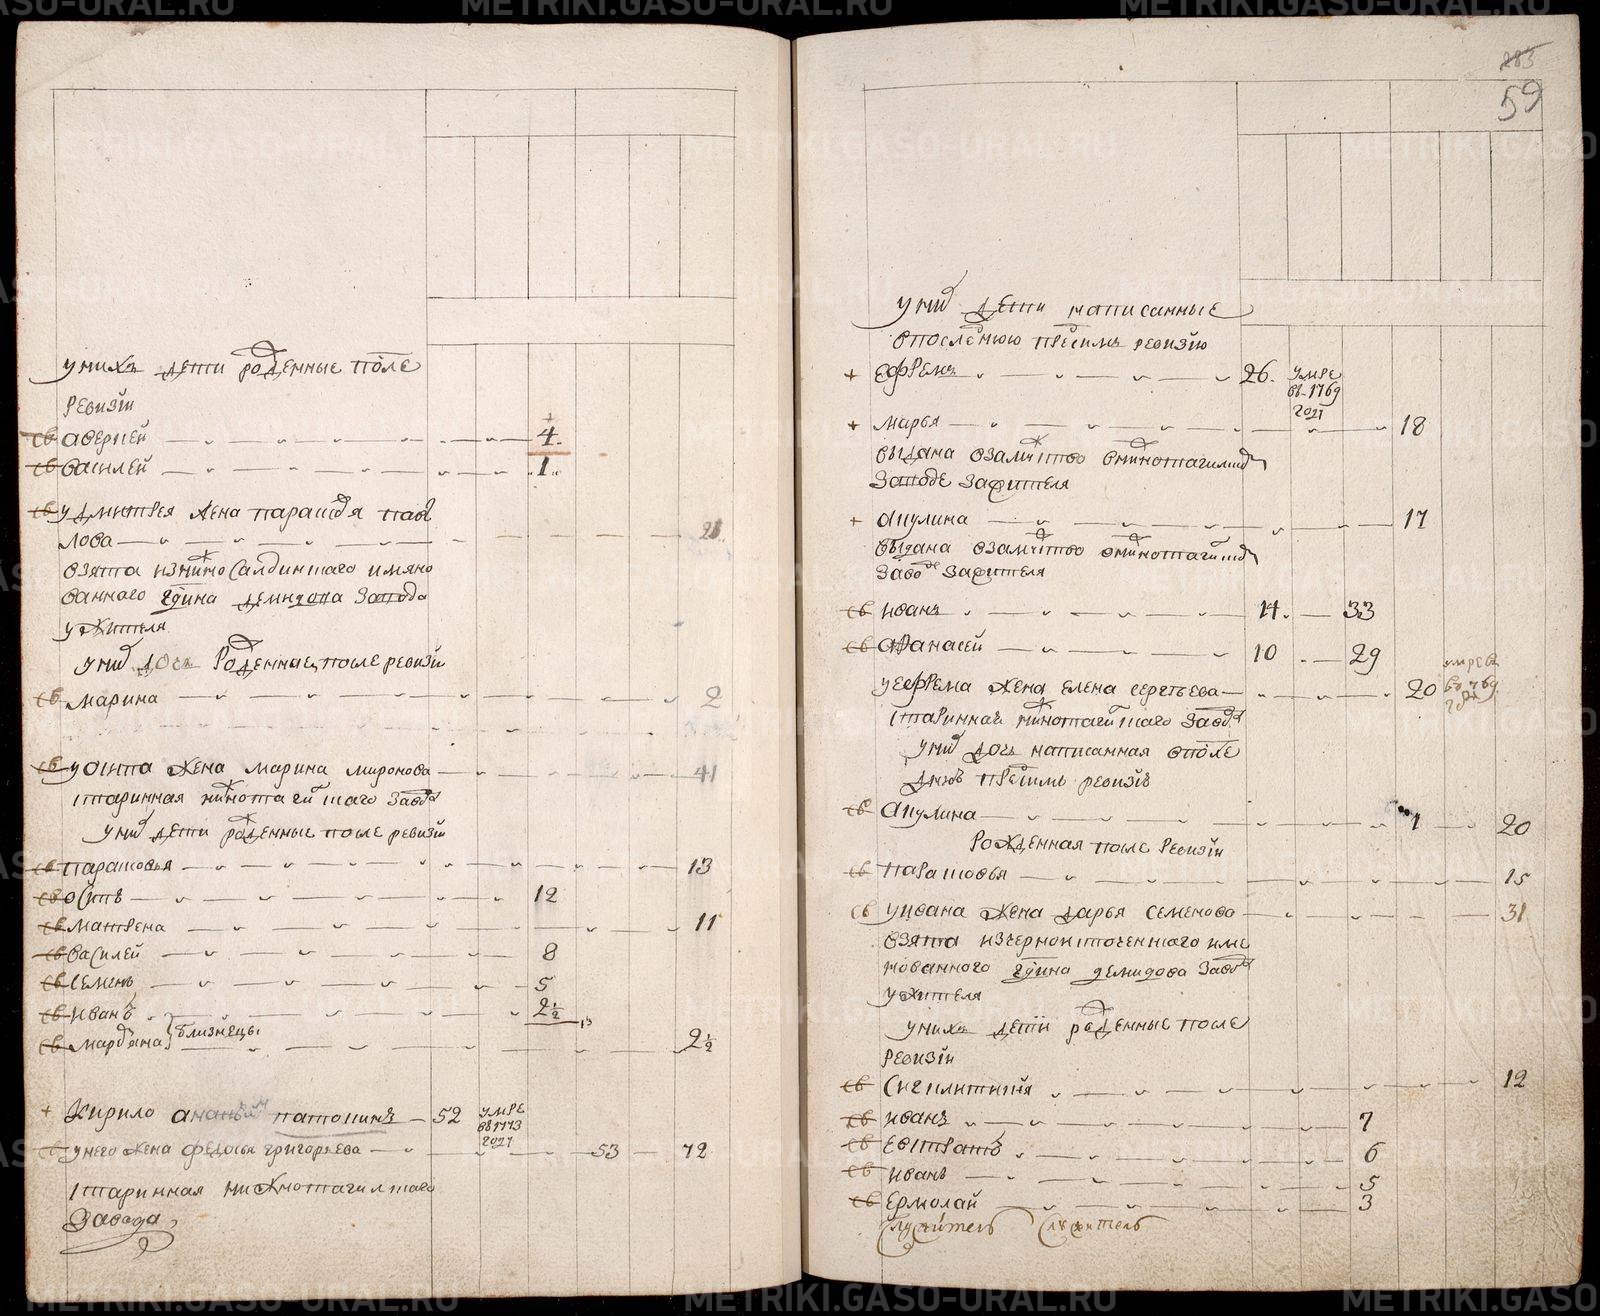 у нихъ дети рожденные после
ревизiи
св аверкей 4
св василей 1
св у дмитрея жена парасковья пав
лова 21
взята из нижно салдинского имяно
ванного г дина демидова завода
у жителя
у них дочь рожденная после ревизiи
св марина 2
св у осипа жена марина миронова 41
старинная нижнотагилского завода
у них дети рожденные после ревизiи
св парасковья 13
св осипъ 12
св матрена 11
св василей 8
св семенъ 5
св иванъ 2½
близнецы
св марьяна 2½
+ кирило ананьин патокинъ 52 умре
въ 1773
году
св у него жена федосья григорьева 53 72
старинная нижнотагилского
завода
283
59
у них дети написанные
в последнюю пред симъ ревизiю
+ ефремъ 26. умре
въ 1769
году
+ марья 18
выдана взамужство в нижнотагилской
заводе за жителя
+ акулина 17
выдана взамужство в нижнотагилской
заводе за жителя
св иванъ 14. 33
св афанасей 10 29
у ефрема жена елена сергеева 20 умре въ
1769
году
старинная нижнотагилского завода
у них дочь написанная в после
днюю пред симъ ревизiю
св акулина 1 20
рожденная после ревизiи
св парасковья 15
св у ивана жена дарья семенова 31
взята из черноисточенского име
нованного г дина демидова завода
у жителя
у нихъ дети рожденные после
ревизiи
св 12
св иванъ 7
св евстратъ 6
св иванъ 5
св ермолай 3
служитель служитель
METRIKI.GASO-URAL.RU